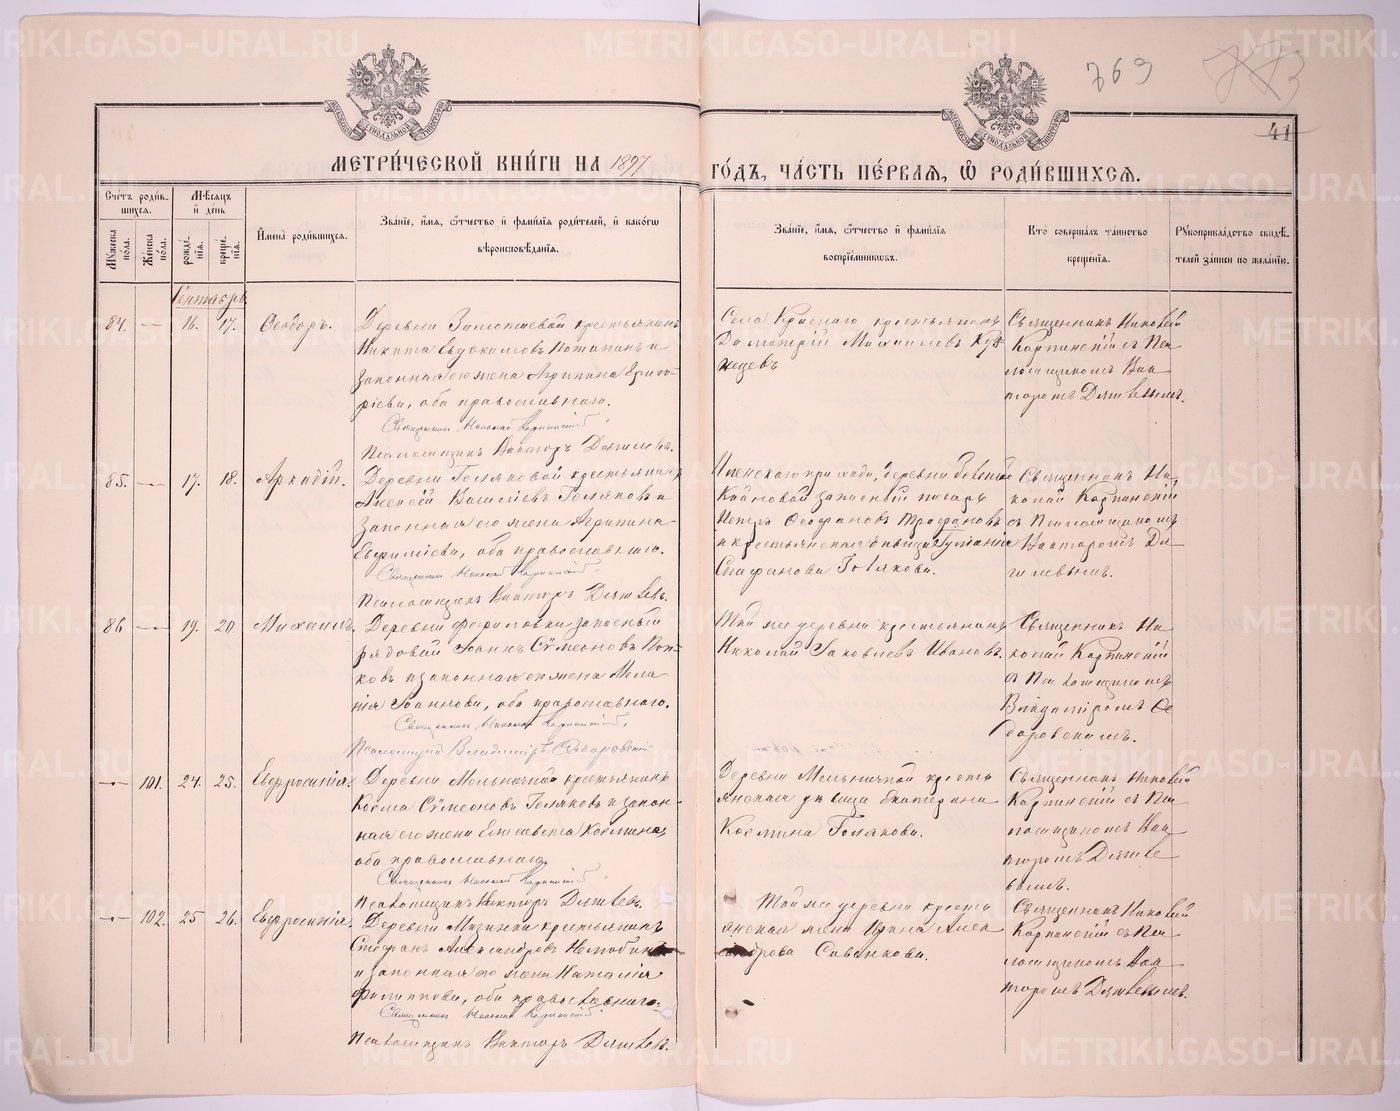 METRIKI.GASO-URAL.RU
769
773
41
МОСКОВСКОЙ СѴНОДАЛЬНОЙ ТИПОГРАФІИ
МОСКОВСКОЙ СѴНОДАЛЬНОЙ ТИПОГРАФІИ
МЕТРИ́ЧЕСКОЙ КНИ́ГИ НА 1897
ГО́ДЪ, ЧА́СТЬ ПЕ́РВАЯ, Ѡ҆ РОДИ́ВШИХСЯ.
Сче́тъ роди́вшихся.
Му́жеска по́ла.
Же́нска по́ла.
Мѣ́сяцъ и҆ де́нь
рожде́нія.
креще́нія.
И҆мена̀ роди́вшихся.
Зва́ніе, и҆́мя, ѻ҆́тчество и҆ фами́лія роди́телей, и҆ како́гѡ
вѣроисповѣ́данія.
Зва́ніе, и҆́мя, ѻ҆́тчество и҆ фами́лія
воспріе́мниковъ.
Кто̀ соверша́лъ та́инство
креще́нія.
Рукоприкла́дство свидѣ́-
телей за́писи по жела́нію.
Сентябрь
84. — 16. 17. Ѳеодоръ.
Деревни крестьянинъ
Никита Евдокимовъ Потапинъ и
законная его жена Агрипина Григо-
ріева, оба православнаго.
Священникъ Николай Карпинскій
Псаломщикъ Викторъ Дягилевъ.
Села Краснаго крестьянинъ
Димитрій Михаиловъ Куз
нецовъ
Священникъ Николай
Карпинскій съ Пса
ломщикомъ Вик
торомъ Дягилевымъ.
85. — 17. 18. Аркадій.
Деревни Голяковой крестьянинъ
Алексій Василіевъ Голяковъ и
законная его жена Агрипина
Евфиміева, оба православнаго.
Священникъ Николай Карпинскій
Псаломщикъ Викторъ Дягилевъ.
прихода, деревни
запасный писарь
Петръ Ѳеофановъ
и крестьянская дѣвица
Стефанова Голякова.
Священникъ Ни-
колай Карпинскій
съ Псаломщикомъ
Викторомъ Дя-
гилевымъ.
86 — 19. 20. Михаилъ.
Деревни запасный
рядовой Іоаннъ Сѵмеоновъ Поп-
ковъ и законная его жена Мела
нія Іоаннова, оба православнаго.
Священникъ Николай Карпинскій.
Псаломщикъ Владиміръ Ѳедоровскій
Той же деревни крестьянинъ
Николай Іаковлевъ Ивановъ.
Священникъ Ни-
колай Карпинскій
съ Псаломщикомъ
Владиміромъ Ѳе
доровскимъ.
— 101. 24. 25. Евфросинія.
Деревни Мельничной крестьянинъ
Косма Сѵмеоновъ Голяковъ и закон-
ная его жена Елисавета Космина,
оба православнаго.
Священникъ Николай Карпинскій
Псаломщикъ Викторъ Дягилевъ.
Деревни Мельничной кресть
янская дѣвица Екатерина
Космина Голякова.
Священникъ Николай
Карпинскій съ Пса
ломщикомъ Вик
торомъ Дягиле
вымъ.
— 102. 25 26. Евфросинія.
Деревни крестьянинъ
Стефанъ Александровъ
и законная его жена Наталія
Филиппова, оба православнаго.
Священникъ Николай Карпинскій
Псаломщикъ Викторъ Дягилевъ.
Той же деревни кресть
янская жена Ирина Алек
сандрова Савинкова.
Священникъ Николай
Карпинскій съ Пса
ломщикомъ Вик
торомъ Дягилевымъ.